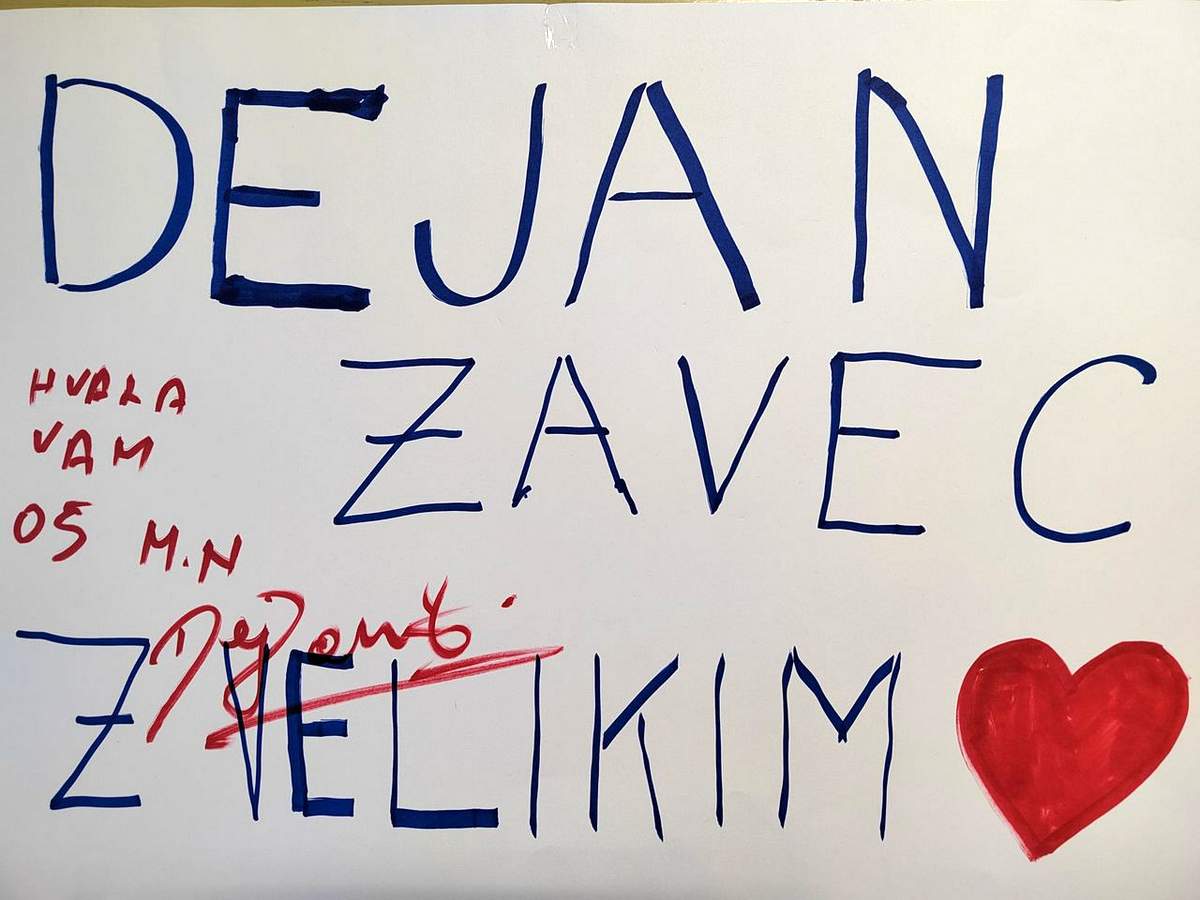 DEJAN
ZAVEC
HVALA
VAM
OŠ M.N
Z VELIKIM